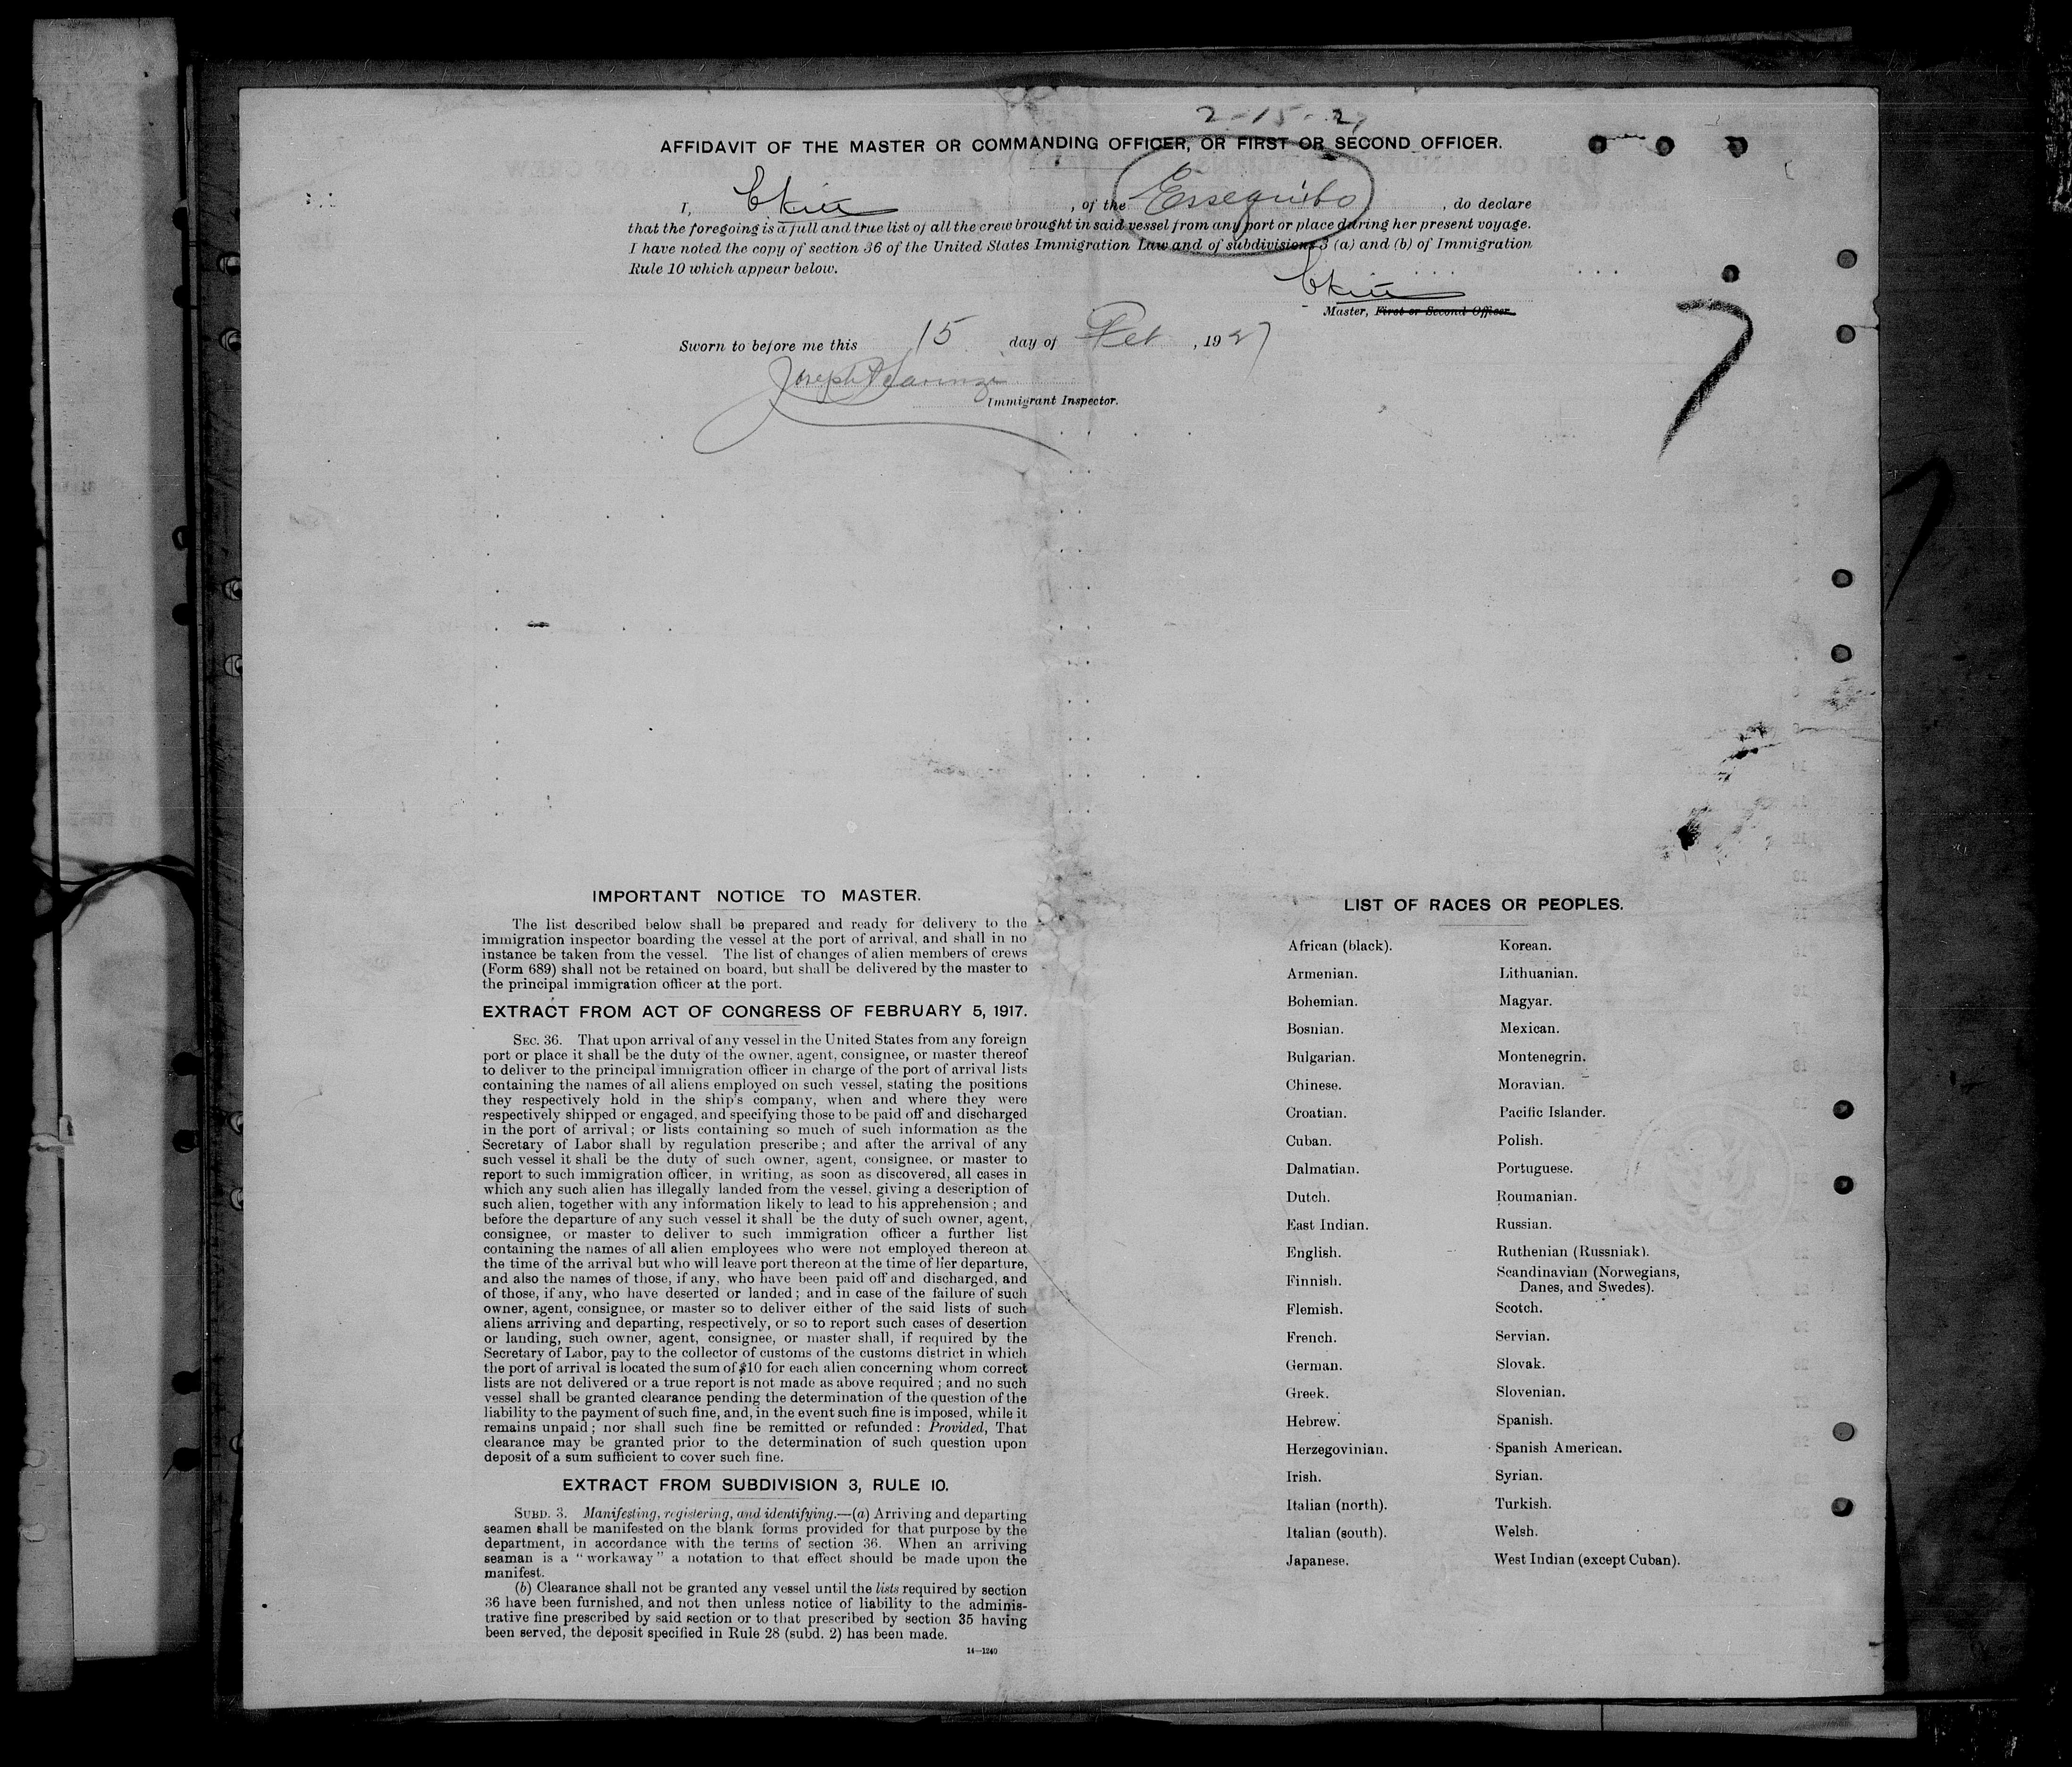 2-15-27
AFFIDAVIT OF THE MASTER OR COMMANDING OFFICER, OR FIRST OR SECOND OFFICER.
I, , of the Essequibo, do declare
that the foregoing is a full and true list of all the crew brought in said vessel from any port or place during her present voyage.
I have noted the copy of section 36 of the United States Immigration Law and of subdivisions 3 (a) and (b) of Immigration
Rule 10 which appear below.
Master, First or Second Officer.
7
Sworn to before me this 15 day of Feb, 1927
Joseph
Immigrant Inspector.
IMPORTANT NOTICE TO MASTER.
The list described below shall be prepared and ready for delivery to the
immigration inspector boarding the vessel at the port of arrival, and shall in no
instance be taken from the vessel. The list of changes of alien members of crews
(Form 689) shall not be retained on board, but shall be delivered by the master to
the principal immigration officer at the port.
EXTRACT FROM ACT OF CONGRESS OF FEBRUARY 5, 1917.
SEC. 36. That upon arrival of any vessel in the United States from any foreign
port or place it shall be the duty of the owner, agent, consignee, or master thereof
to deliver to the principal immigration officer in charge of the port of arrival lists
containing the names of all aliens employed on such vessel, stating the positions
they respectively hold in the ship's company, when and where they were
respectively shipped or engaged, and specifying those to be paid off and discharged
in the port of arrival; or lists containing so much of such information as the
Secretary of Labor shall by regulation prescribe; and after the arrival of any
such vessel it shall be the duty of such owner, agent, consignee, or master to
report to such immigration officer, in writing, as soon as discovered, all cases in
which any such alien has illegally landed from the vessel, giving a description of
such alien, together with any information likely to lead to his apprehension; and
before the departure of any such vessel it shall be the duty of such owner, agent,
consignee, or master to deliver to such immigration officer a further list
containing the names of all alien employees who were not employed thereon at
the time of the arrival but who will leave port thereon at the time of her departure,
and also the names of those, if any, who have been paid off and discharged, and
of those, if any, who have deserted or landed; and in case of the failure of such
owner, agent, consignee, or master so to deliver either of the said lists of such
aliens arriving and departing, respectively, or so to report such cases of desertion
or landing, such owner, agent, consignee, or master shall, if required by the
Secretary of Labor, pay to the collector of customs of the customs district in which
the port of arrival is located the sum of $10 for each alien concerning whom correct
lists are not delivered or a true report is not made as above required; and no such
vessel shall be granted clearance pending the determination of the question of the
liability to the payment of such fine, and, in the event such fine is imposed, while it
remains unpaid; nor shall such fine be remitted or refunded: Provided, That
clearance may be granted prior to the determination of such question upon
deposit of a sum sufficient to cover such fine.
EXTRACT FROM SUBDIVISION 3, RULE 10.
SUBD. 3. Manifesting, registering, and identifying.—(a) Arriving and departing
seamen shall be manifested on the blank forms provided for that purpose by the
department, in accordance with the terms of section 36. When an arriving
seaman is a "workaway" a notation to that effect should be made upon the
manifest.
(b) Clearance shall not be granted any vessel until the lists required by section
36 have been furnished, and not then unless notice of liability to the adminis-
trative fine prescribed by said section or to that prescribed by section 35 having
been served, the deposit specified in Rule 28 (subd. 2) has been made.
14—1240
LIST OF RACES OR PEOPLES.
African (black). Korean.
Armenian. Lithuanian.
Bohemian. Magyar.
Bosnian. Mexican.
Bulgarian. Montenegrin.
Chinese. Moravian.
Croatian. Pacific Islander.
Cuban. Polish.
Dalmatian. Portuguese.
Dutch. Roumanian.
East Indian. Russian.
English. Ruthenian (Russniak).
Finnish. Scandinavian (Norwegians,
Danes, and Swedes).
Flemish. Scotch.
French. Servian.
German. Slovak.
Greek. Slovenian.
Hebrew. Spanish.
Herzegovinian. Spanish American.
Irish. Syrian.
Italian (north). Turkish.
Italian (south). Welsh.
Japanese. West Indian (except Cuban).